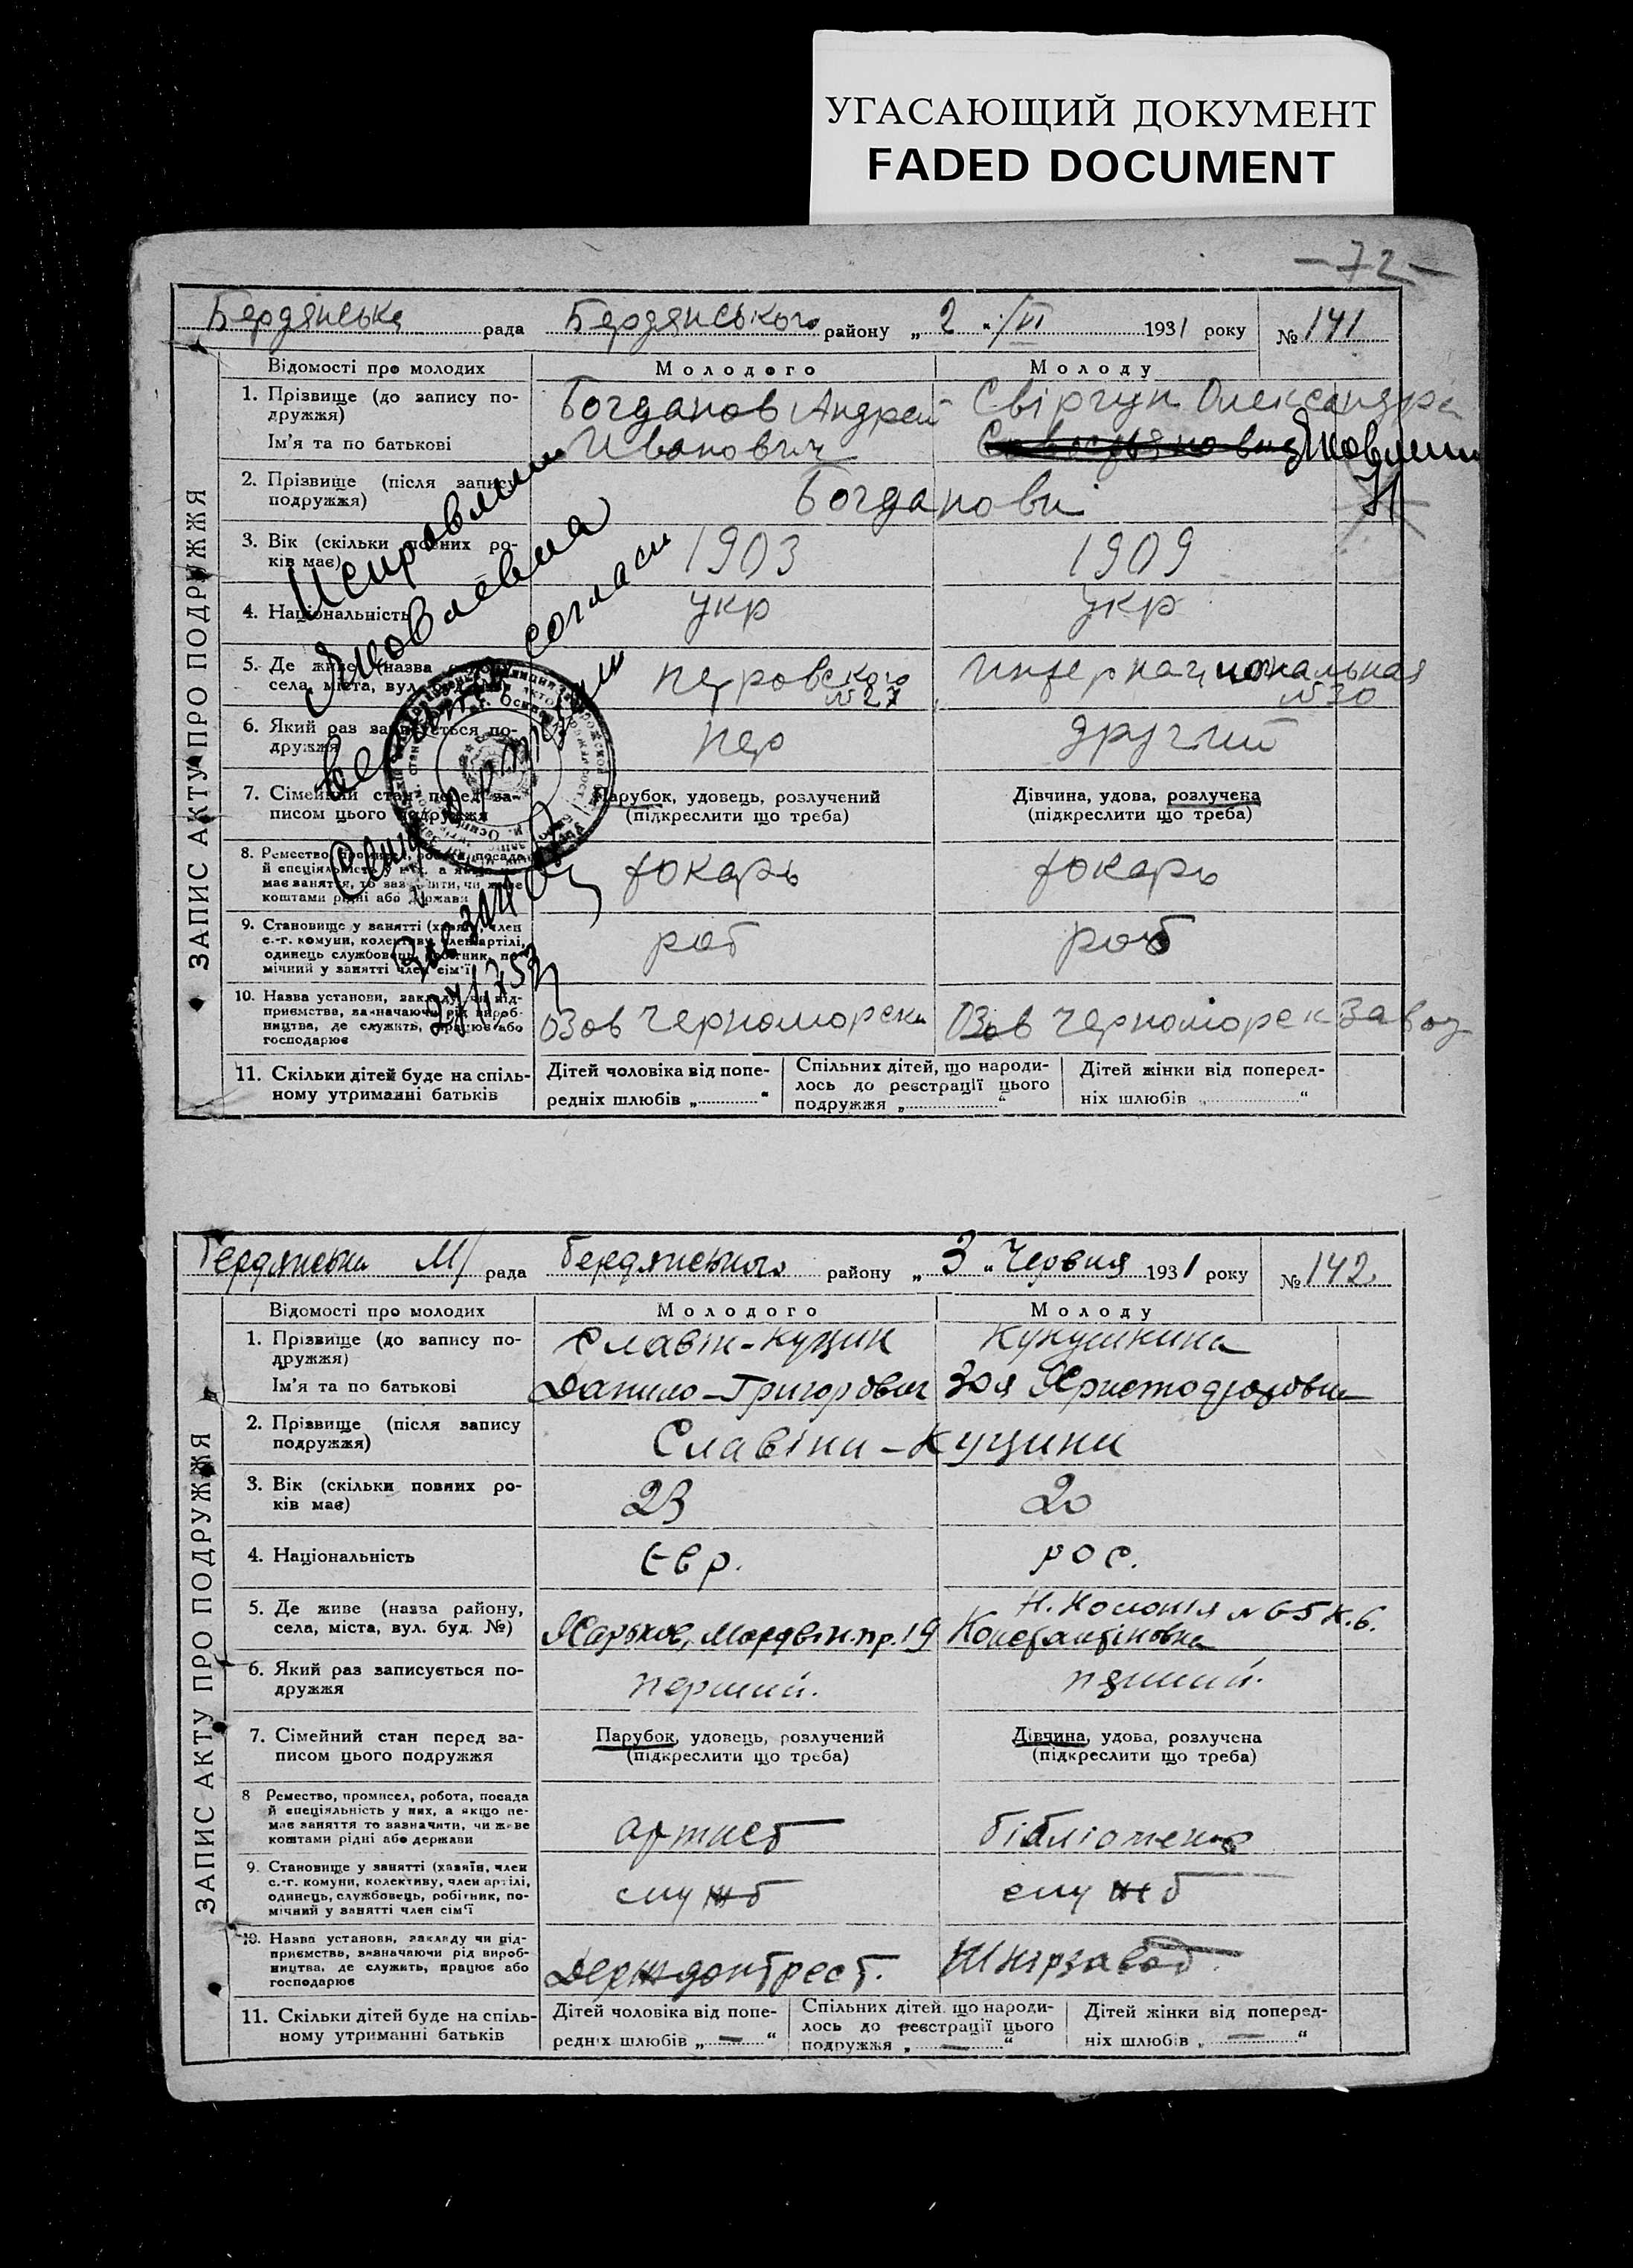 УГАСАЮЩИЙ ДОКУМЕНТ
FADED DOCUMENT
— 72 —
ЗАПИС АКТУ ПРО ПОДРУЖЖЯ
Бердянська рада Бердянського району „ 2 “ /VI 1931 року № 141
Відомості про молодих Молодого Молоду
1. Прізвище (до запису по-
дружжя)
Богданов Андрей Свіргун Олександра
Ім'я та по батькові Иванович
2. Прізвище (після запису
подружжя)
Богданови
3. Вік (скільки повних ро-
ків має)
1903 1909
4. Національність укр укр
5. Де живе (назва району,
села, міста, вул. буд. №)
Петровского № 27 Интернациональная № 30
6. Який раз записується по-
дружжя
пер другий
7. Сімейний стан перед за-
писом цього подружжя
Парубок, удовець, розлучений
(підкреслити що треба)
Дівчина, удова, розлучена
(підкреслити що треба)
8. Ремество, промисел, робота, посада
й спеціяльність у них, а якщо не-
має заняття, то зазначити, чи живе
коштами рідні або держави
токарь токарь
9. Становище у занятті (хазяїн, член
с.-г. комуни, колективу, член артілі,
одинець службовець, робітник, по-
мічний у занятті член сім'ї
роб роб
10. Назва установи, закладу чи під-
приємства, зазначаючи рід вироб-
ництва, де служить, працює або
господарює
Озов Черноморски Озов Черноморск завод
11. Скільки дітей буде на спіль-
ному утриманні батьків
Дітей чоловіка від попе-
редніх шлюбів „ “
Спільних дітей, що народи-
лось до реєстрації цього
подружжя „ “
Дітей жінки від поперед-
ніх шлюбів „ “
Исправлени
Яковлевна
верить согласи
ЗАПИС АКТУ ПРО ПОДРУЖЖЯ
Бердянська М/ рада Бердянського району „ 3 “ Червня 1931 року № 142
Відомості про молодих Молодого Молоду
1. Прізвище (до запису по-
дружжя)
Славін-Куцин Кукушкина
Ім'я та по батькові Данило-Григорович Зоя
2. Прізвище (після запису
подружжя)
Славіни-Куцини
3. Вік (скільки повних ро-
ків має)
23 20
4. Національність Євр. рос.
5. Де живе (назва району,
села, міста, вул. буд. №)
Харьков, пр. 19 Н. Колонія № 65 к. 6.
Константіновка
6. Який раз записується по-
дружжя
перший. перший.
7. Сімейний стан перед за-
писом цього подружжя
Парубок, удовець, розлучений
(підкреслити що треба)
Дівчина, удова, розлучена
(підкреслити що треба)
8 Ремество, промисел, робота, посада
й спеціяльність у них, а якщо не-
має заняття то зазначити, чи живе
коштами рідні або держави
артист бібліотекар
9. Становище у занятті (хазяїн, член
с.-г. комуни, колективу, член артілі,
одинець, службовець, робітник, по-
мічний у занятті член сім'ї
служб служб
10. Назва установи, закладу чи під-
приємства, зазначаючи рід вироб-
ництва, де служить, працює або
господарює
11. Скільки дітей буде на спіль-
ному утриманні батьків
Дітей чоловіка від попе-
редніх шлюбів „ — “
Спільних дітей, що народи-
лось до реєстрації цього
подружжя „ — “
Дітей жінки від поперед-
ніх шлюбів „ — “